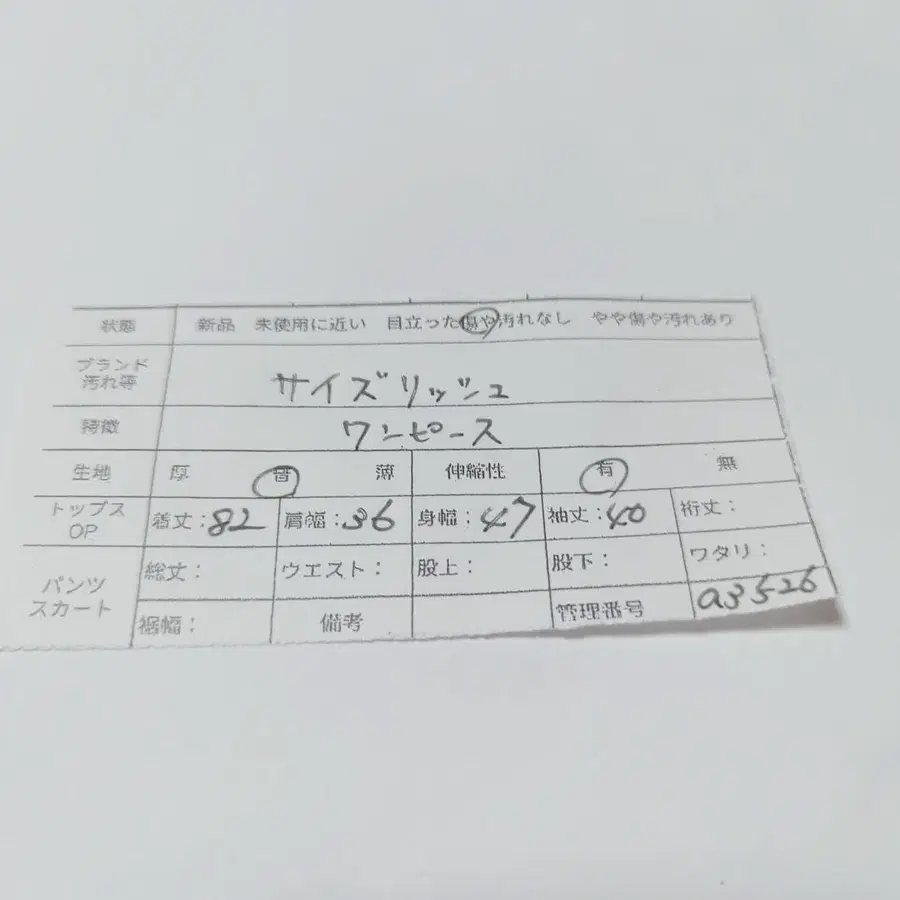 状態 新品 未使用に近い 目立った傷や汚れなし やや傷や汚れあり
ブランド
汚れ等 サイズリッシュ
特徴 ワンピース
生地 厚 普 薄 伸縮性 有 無
トップス
OP 着丈:82 肩幅:36 身幅:47 袖丈:40 裄丈:
パンツ
スカート 総丈: ウエスト: 股上: 股下: ワタリ:
裾幅: 備考 管理番号 a3526